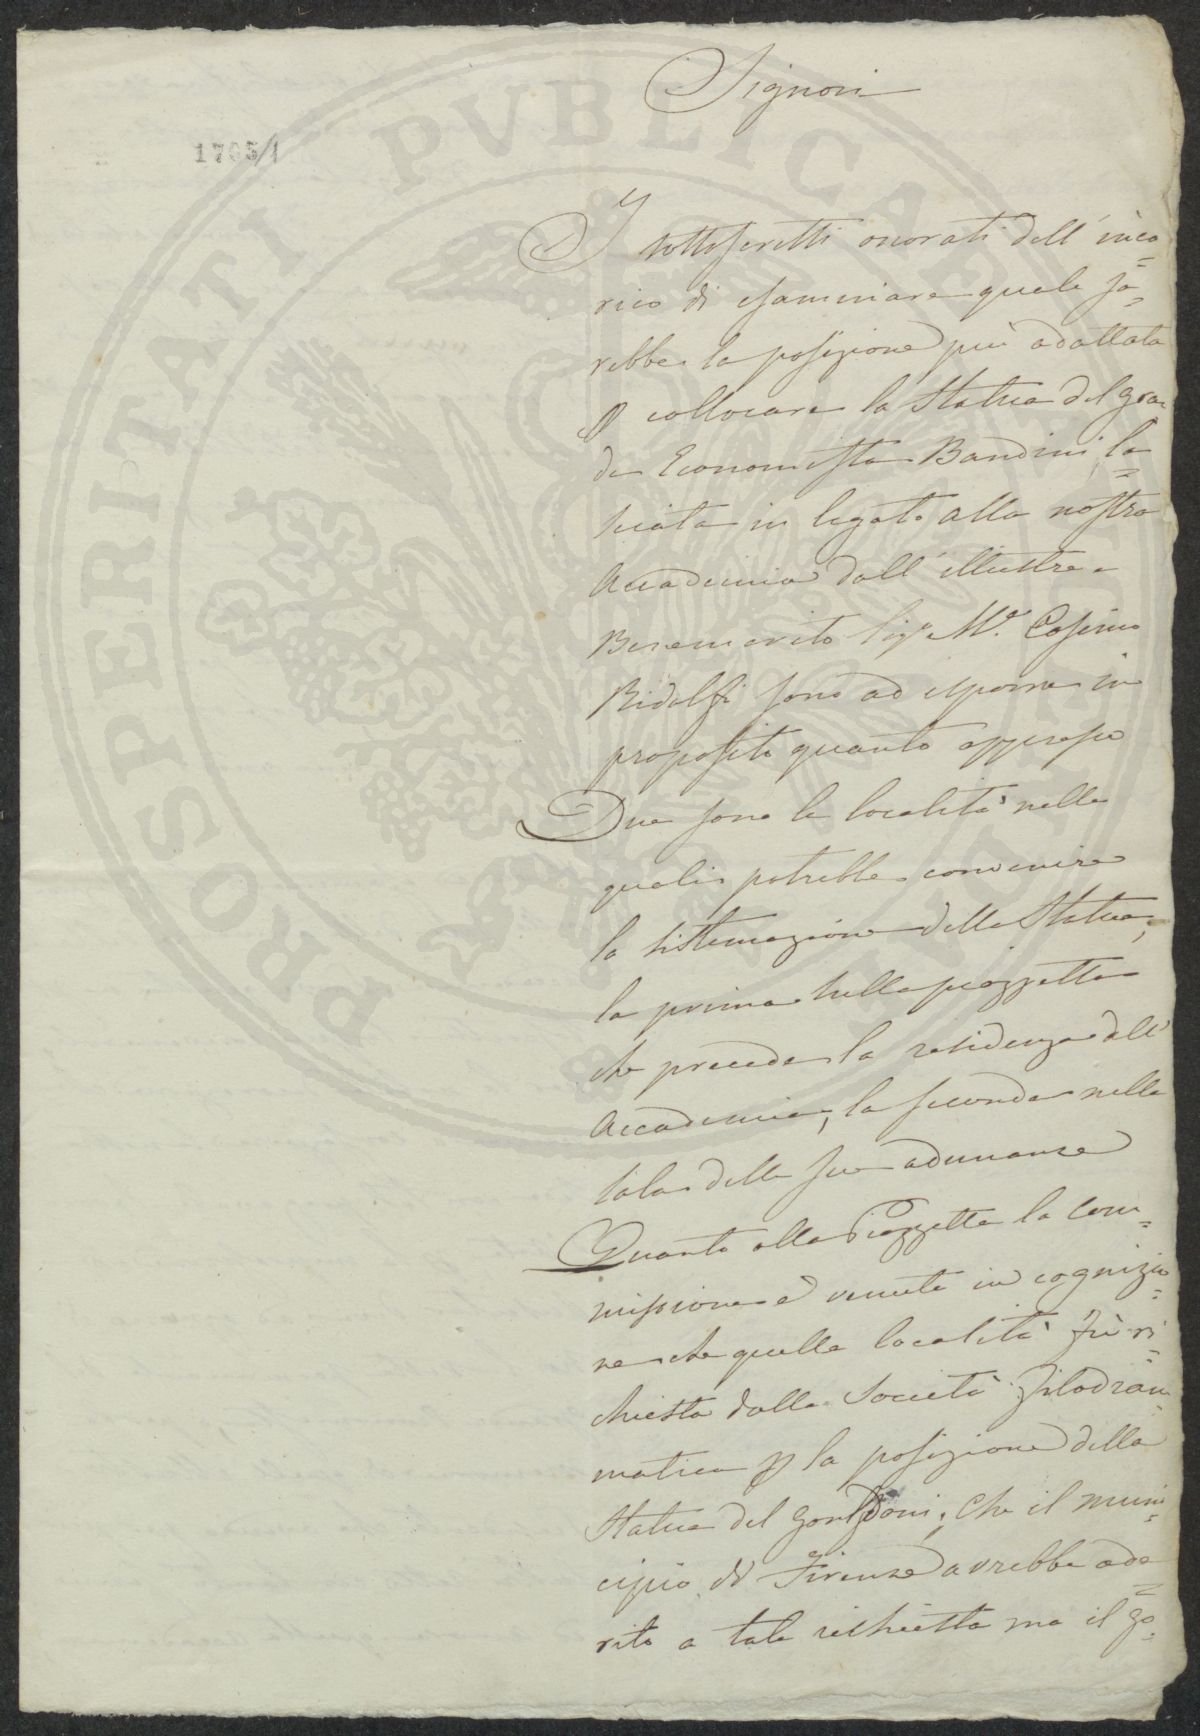 Signori
1705/1
I sottoscritti onorati dell' inca=
rico di esaminare quale sa=
rebbe la posizione più adattata
p collocare la Statua del gran
de Economista Bandini la=
sciata in legato alla nostra
Accademia dall' illustre
Benemerito Sigr. Me. Cosimo
Ridolfi sono ad esporre in
proposito quanto appresso
Due sono le località nelle
quali potrebbe convenire
la sistemazione della Statua,
la prima nella piazzetta
che precede la residenza dell'
Accademia, la seconda nella
sala delle sue adunanze
Quanto alla Piazzetta la Com=
missione è venuta in cognizio=
ne che quella località fù ri=
chiesta dalla Società Filodram=
matica p la posizione della
Statua del Goldoni; Che il muni=
cipio di Firenze avrebbe ade=
rito a tale richiesta ma il go=
PROSPERITATI PVBLICAE